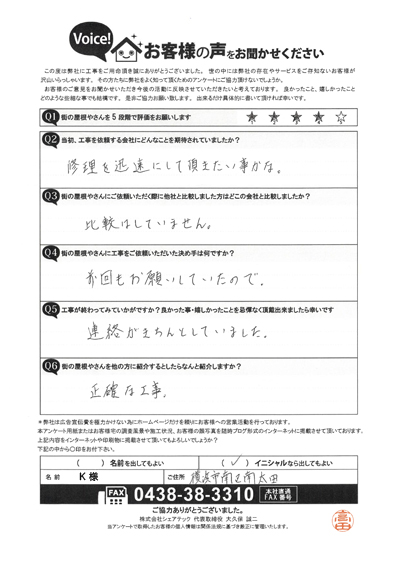 Voice!
お客様の声をお聞かせください
この度は弊社に工事をご用命頂き誠にありがとうございました。世の中には弊社の存在やサービスをご存知ないお客様が
沢山いらっしゃいます。その方たちに弊社をよく知って頂くためのアンケートにご協力頂けないでしょうか。
お客様のご意見をお聞かせいただき今後の活動に反映させていただきたいと考えております。良かったこと、嬉しかったこと
どのような些細な事でも結構です。是非ご協力お願い致します。出来るだけ具体的に書いて頂ければ幸いです。
Q1 街の屋根やさんを5段階で評価をお願いします ★ ★ ★ ★ ☆
Q2 当初、工事を依頼する会社にどんなことを期待されていましたか?
修理を迅速にして頂きたい事かな。
Q3 街の屋根やさんにご依頼いただく際に他社と比較しました方はどこの会社と比較しましたか?
比較はしていません。
Q4 街の屋根やさんに工事をご依頼いただいた決め手は何ですか?
前回もお願いしていたので.
Q5 工事が終わってみていかがですか?良かった事・嬉しかったことを忌憚なく頂戴出来ましたら幸いです
連絡がきちんとしていました.
Q6 街の屋根やさんを他の方に紹介するとしたらなんと紹介しますか?
正確な工事.
※弊社は広告宣伝費を極力かけない為にホームページだけを頼りにお客様への営業活動を行っております。
本アンケート用紙またはお客様宅の調査風景や施工状況、お客様の顔写真を随時ブログ形式のインターネットに掲載させて頂いております。
上記内容をインターネットや印刷物に掲載させて頂いてもよろしいでしょうか?
下記の中から〇印をお付下さい。
( ) 名前を出してもよい ( ✓ ) イニシャルなら出してもよい
名前 K 様 ご住所 横浜市南区南太田
FAX 0438-38-3310 本社直通 FAX番号
ご協力ありがとうございました。
株式会社シェアテック 代表取締役 大久保 誠二
当アンケートで取得したお客様の個人情報は関係法規に基づき厳正に管理いたします。